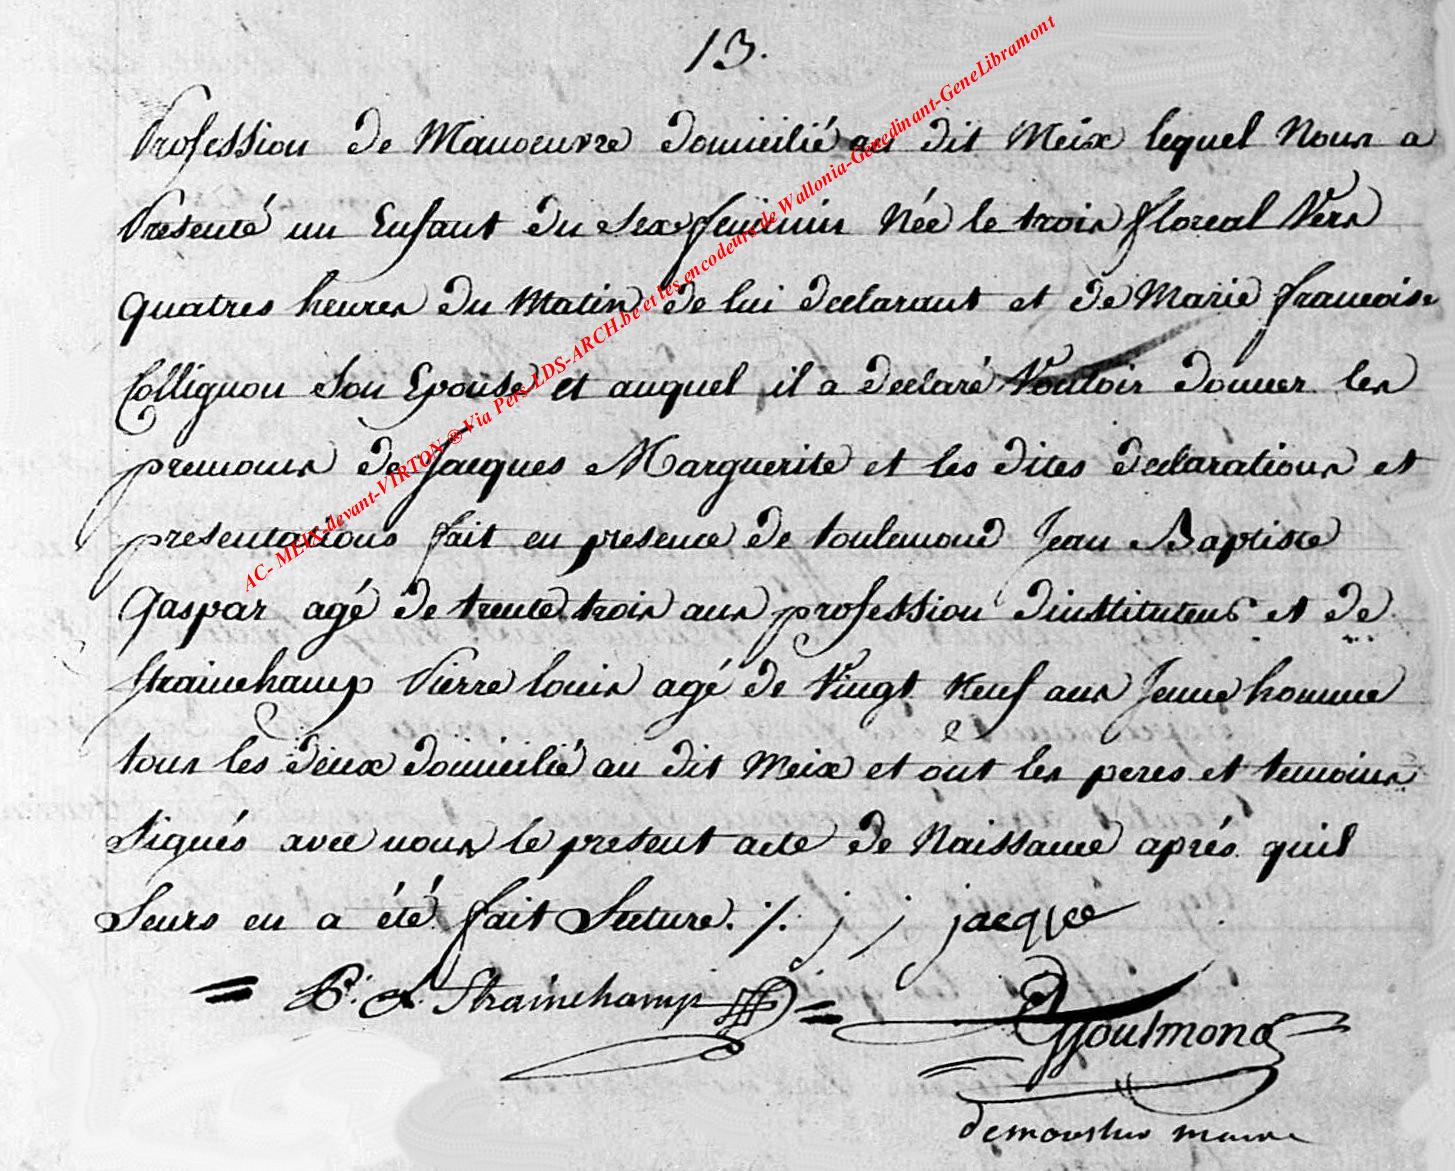 13.
Profession de Manoeuvre domicilié au dit Meix lequel Nous a
Presenté un Enfant du Sexe feminin Née le trois floreal Vers
quatres heures du Matin de lui declarant et de Marie francoise
Collignon Son Epouse et auquel il a declaré Vouloir donner les
prenoms de Jacques Marguerite et les dites declarations et
presentations fait en presence de toulemond Jean Baptiste
Gaspar agé de trente trois ans profession dinstituteur et de
Strainchamp Pierre louis agé de Vingt Neuf ans Jeune homme
tous les deux domicilié au dit Meix et ont les peres et temoins
Signés avec nous le present acte de Naissance aprés quil
Leurs en a été fait Lecture. /. j j jacqué
= P. L. Strainchamp =
Toulmond
demoustier maire
AC- MEIX-devant-VIRTON ® Via Pers-LDS-ARCH.be et les encodeurs de Wallonia-Genedinant-GeneLibramont